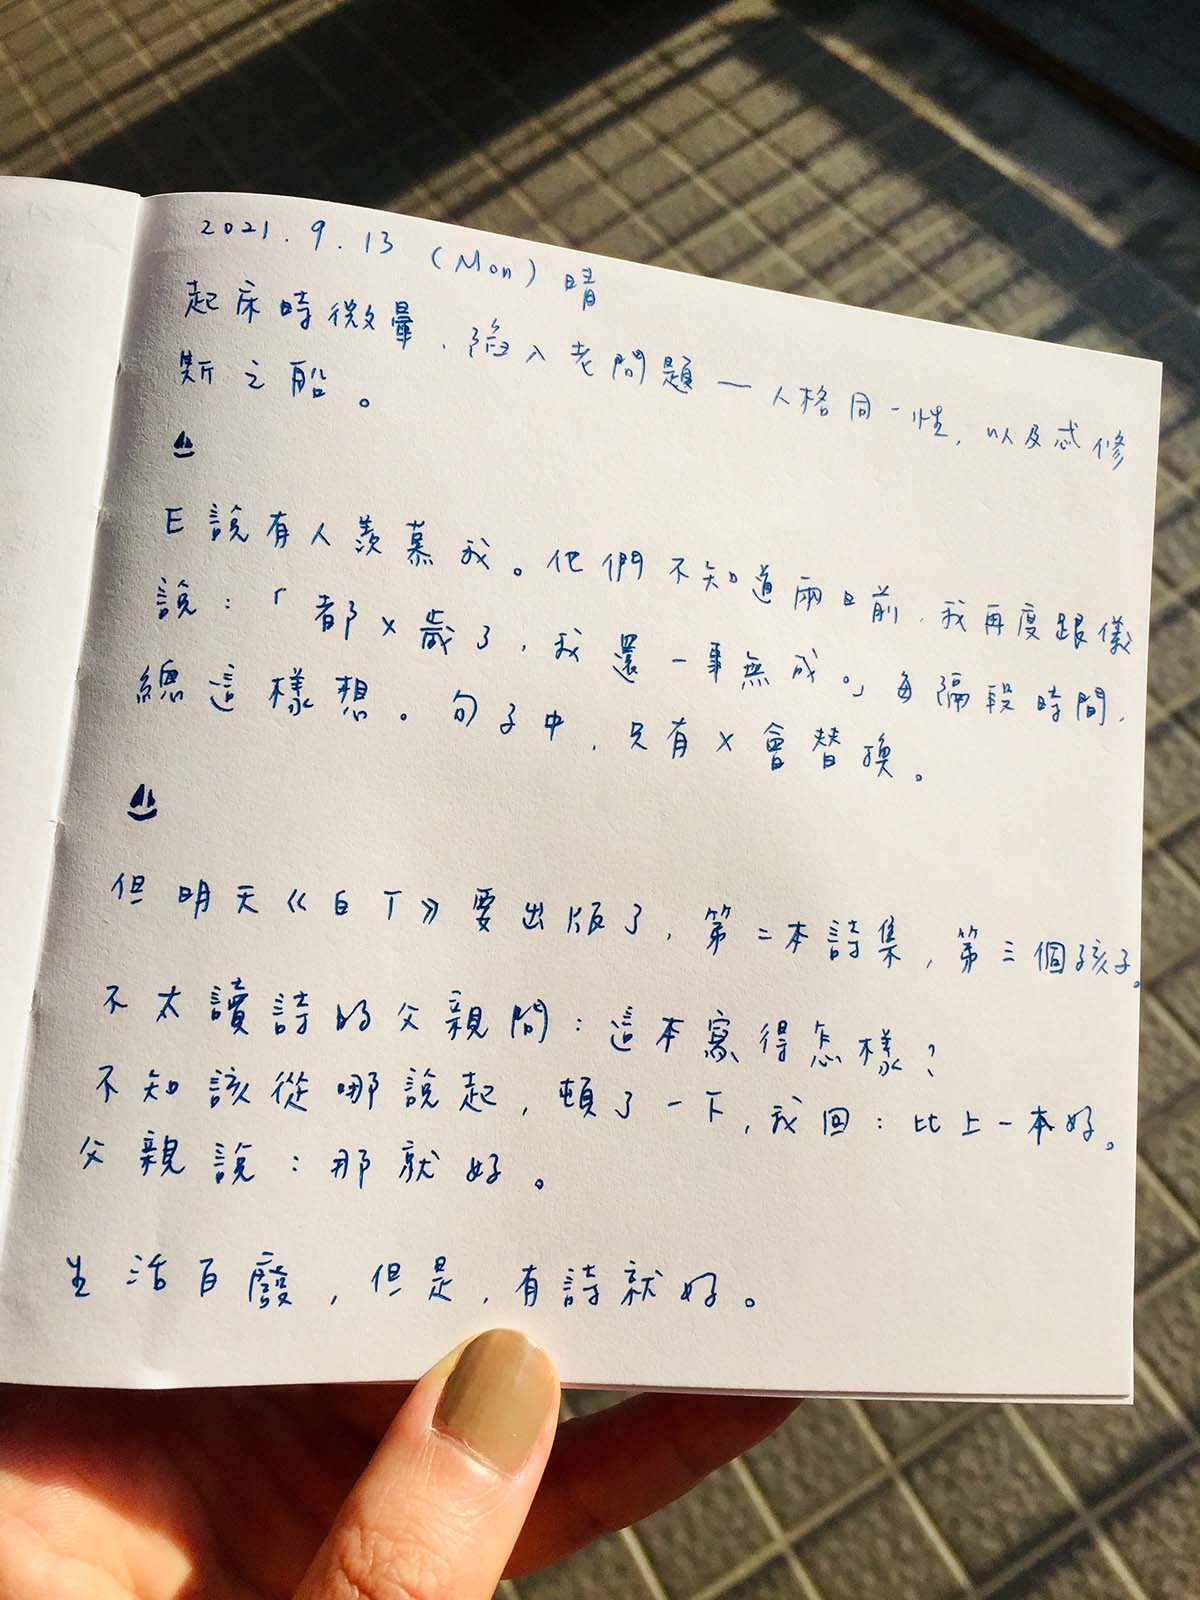 2021.9.13 (Mon) 晴
起床時微暈,陷入老問題—人格同一性,以及忒修
斯之船。
E說有人羨慕我。他們不知道兩日前,我再度跟儀
說:「都X歲了,我還一事無成。」每隔段時間,
總這樣想。句子中,只有X會替換。
但明天《自T》要出版了,第二本詩集,第三個孩子。
不太讀詩的父親問:這本寫得怎樣?
不知該從哪說起,頓了一下,我回:比上一本好。
父親說:那就好。
生活百廢,但是,有詩就好。